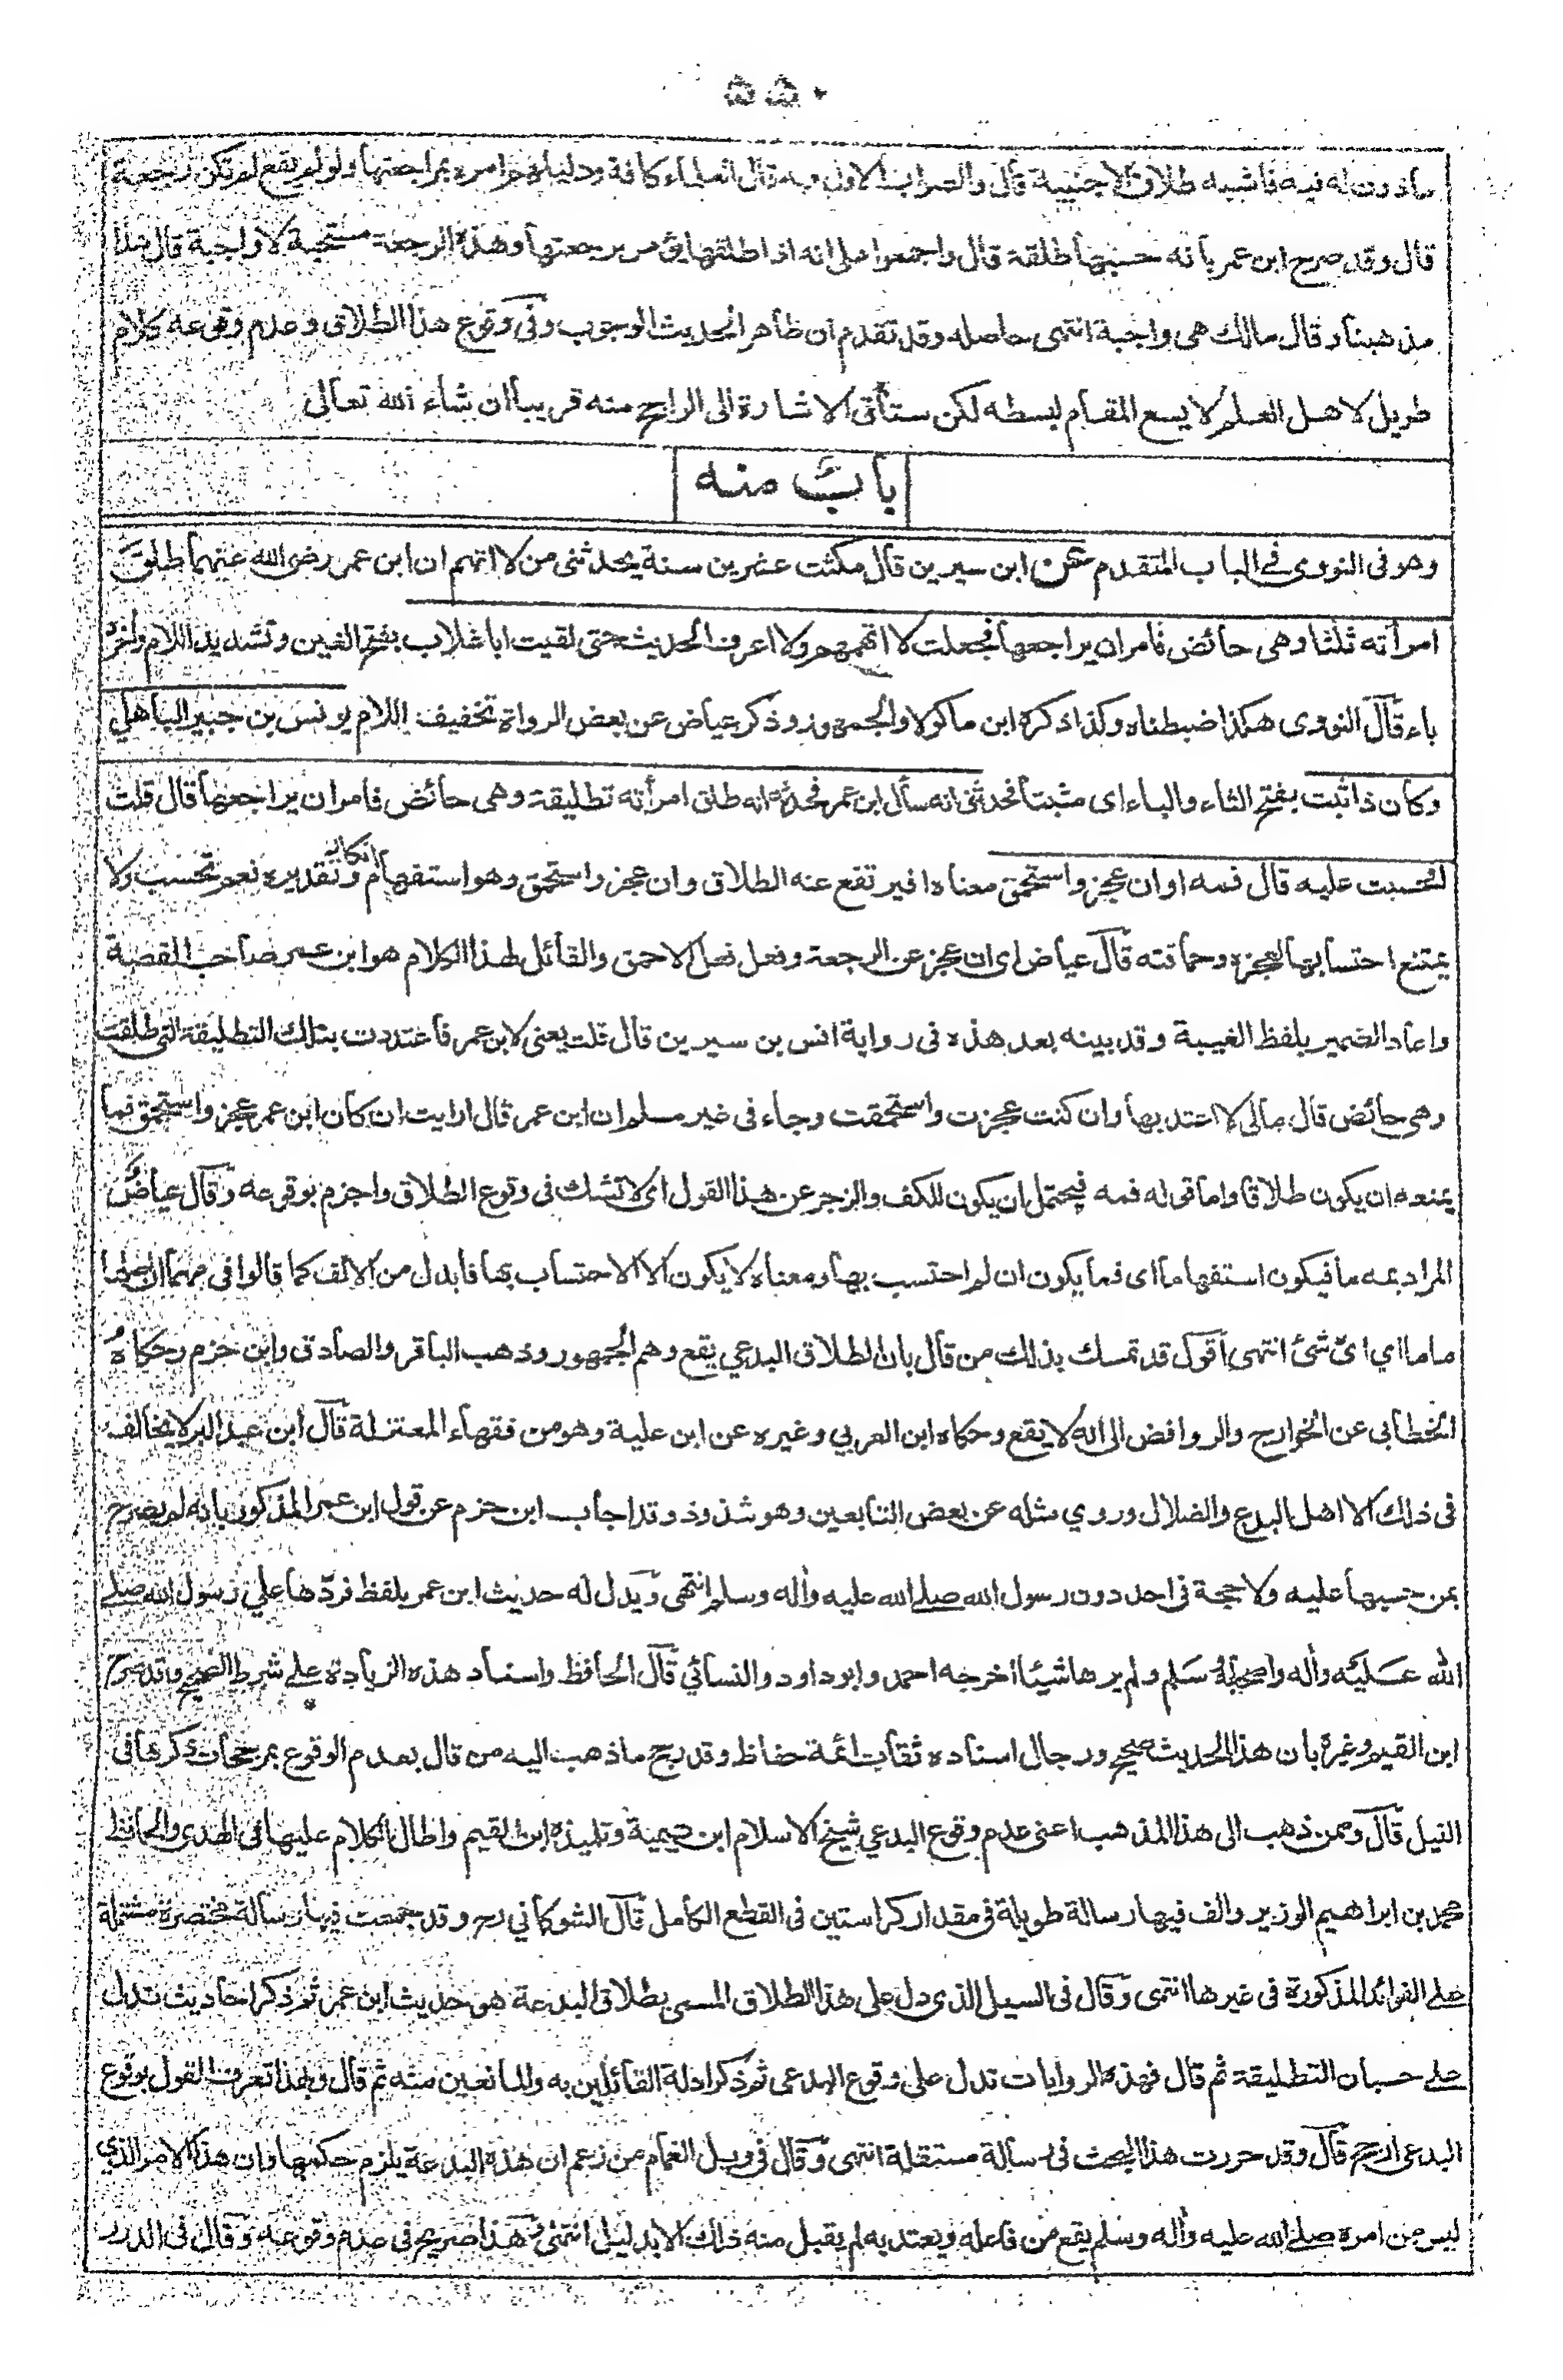 ٥٥٠
مأذون له فيه فاشبه طلاق الاجنبية قال والصواب الاول وبه قال العلماء كافة ودليله امره بمراجعتها ولو لم يقع لم تكن رجعة
قال وقد صرح ابن عمر بأنه حسبها طلقة قال واجمعوا على انه اذا طلقها يؤمر برجعتها وهذه الرجعة مستحبة لا واجبة قال هذا
مذهبنا وقال مالك هى واجبة انتهى حاصله وقد تقدم ان ظاهر الحديث الوجوب وفى وقوع هذا الطلاق وعدم وقوعه كلام
طويل لاهل العلم لا يسع المقام لبسطه لكن ستأتى الاشارة الى الراجح منه قريبا ان شاء الله تعالى
باب منه
وهو فى النووى فى الباب المتقدم عن ابن سيرين قال مكثت عشرين سنة يحدثنى من لا اتهم ان ابن عمر رضى الله عنهما طلق
امرأته ثلثا وهى حائض فامر ان يراجعها فجعلت لا اتهمهم ولا اعرف الحديث حتى لقيت ابا غلاب بفتح الغين وتشديد اللام واخره
باء قال النووى هكذا ضبطناه وكذا ذكره ابن ماكولا والجمهور وذكر عياض عن بعض الرواة تخفيف اللام يونس بن جبير الباهلي
وكان ذا ثبت بفتح الثاء والباء اى مثبتا فحدثنى انه سأل ابن عمر فحدثه انه طلق امرأته تطليقة وهى حائض فامر ان يراجعها قال قلت
افحسبت عليه قال فمه او ان عجز واستحمق معناه افيرتفع عنه الطلاق وان عجز واستحمق وهو استفهام انكار وتقديره نعم تحسب ولا
يمتنع احتسابها لعجزه وحماقته قال عياض اى ان عجز عن الرجعة وفعل فعل الاحمق والقائل لهذا الكلام هو ابن عمر صاحب القصة
واعاد الضمير بلفظ الغيبة وقد بينه بعد هذه فى رواية انس بن سيرين قال قلت يعنى لابن عمر فاعتددت بتلك التطليقة التى طلقت
وهى حائض قال مالى لا اعتد بها وان كنت عجزت واستحمقت وجاء فى غير مسلم ان ابن عمر قال ارايت ان كان ابن عمر عجز واستحمق فما
يمنعه ان يكون طلاقا واما قوله فمه فيحتمل ان يكون للكف والزجر عن هذا القول اى لا تشك فى وقوع الطلاق واجزم بوقوعه وقال عياض
المراد بمه ما فيكون استفهاما اى فما يكون ان لم احتسب بها ومعناه لا يكون الا الاحتساب بها فابدل من الالف كما قالوا فى مهما ان اصلها
ماما اي اىّ شئ انتهى اقول قد تمسك بذلك من قال بان الطلاق البدعي يقع وهم الجمهور وذهب الباقر والصادق وابن حزم وحكاه
الخطابى عن الخوارج والروافض الى انه لا يقع وحكاه ابن العربي وغيره عن ابن علية وهو من فقهاء المعتزلة قال ابن عبد البر لا يخالف
فى ذلك الا اهل البدع والضلال وروي مثله عن بعض التابعين وهو شذوذ وقد اجاب ابن حزم عن قول ابن عمر المذكور بانه لم يصرح
بمن حسبها عليه ولا حجة فى احد دون رسول الله صلے الله عليه وأله وسلم انتهى ويدل له حديث ابن عمر بلفظ فردّها علي رسول الله صلے
الله عليه وأله واصحابه وسلم ولم يرها شيئا اخرجه احمد وابو داود والنسائي قال الحافظ واسناد هذه الزيادة علے شرط الصحيح وقد صرح
ابن القيم وغيره بان هذا الحديث صحيح ورجال اسناده ثقات ائمة حفاظ وقد رجح ما ذهب اليه من قال بعدم الوقوع بمرجحات ذكرها فى
النيل قال وممن ذهب الى هذا المذهب اعنى عدم وقوع البدعي شيخ الاسلام ابن تيمية وتلميذه ابن القيم واطال الكلام عليها فى الهدى والحافظ
محمد بن ابراهيم الوزير والف فيها رسالة طويلة فى مقدار كراستين فى القطع الكامل قال الشوكاني رح وقد جمعت فيها رسالة مختصرة مشتملة
علے الفوائد المذكورة فى غيرها انتهى وقال فى السيل الذي دل على هذا الطلاق المسمى بطلاق البدعة هو حديث ابن عمر ثم ذكر احاديث تدل
علے حسبان التطليقة ثم قال فهذه الروايات تدل على وقوع البدعى ثم ذكر ادلة القائلين به والمانعين منه ثم قال وبهذا تعرف القول بوقوع
البدعى ارجح قال وقد حررت هذا البحث فى رسالة مستقلة انتهى وقال فى وبل الغمام من زعم ان هذه البدعة يلزم حكمها وان هذا الامر الذي
ليس من امره صلے الله عليه وأله وسلم يقع من فاعله ويعتد به لم يقبل منه ذلك الا بدليل انتهى وهذا صريح فى عدم وقوعه وقال فى الدرر